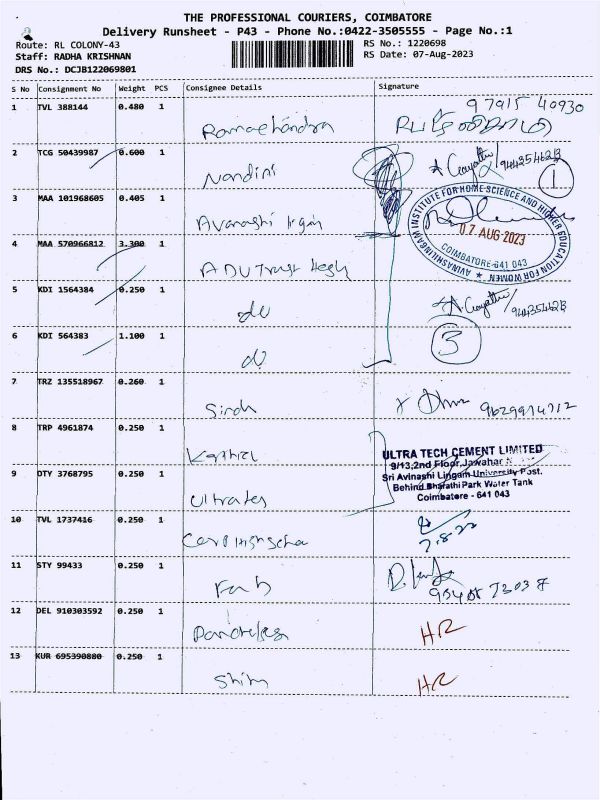 THE PROFESSIONAL COURIERS, COIMBATORE
Delivery Runsheet - P43 - Phone No.:0422-3505555 - Page No.:1
Route: RL COLONY-43
RS No.: 1220698
Staff: RADHA KRISHNAN
RS Date: 07-Aug-2023
DRS No.: DCJB122069801
S No Consignment No Weight PCS Consignee Details Signature
1 TVL 388144 0.480 1 Ramachandra 97915 40930
2 TCG 50439987 0.600 1 Nandini Gayathri 1
3 MAA 101968605 0.405 1
AVINASHILINGAM INSTITUTE FOR HOME SCIENCE AND HIGHER EDUCATION FOR WOMEN
07 AUG 2023
COIMBATORE-641 043
4 MAA 570966812 3.300 1
5 KDI 1564384 0.250 1 do Gayathri
6 KDI 564383 1.100 1 do 3
7 TRZ 135518967 0.260 1
8 TRP 4961874 0.250 1
ULTRA TECH CEMENT LIMITED
9/13,2nd Floor,Jawahar
Sri Avinashi Lingam University Post.
Behind Bharathi Park Water Tank
Coimbatore - 641 043
9 DTY 3768795 0.250 1 Ultratec
10 TVL 1737416 0.250 1
11 STY 99433 0.250 1
12 DEL 910303592 0.250 1 HR
13 KUR 695390880 0.250 1 HR